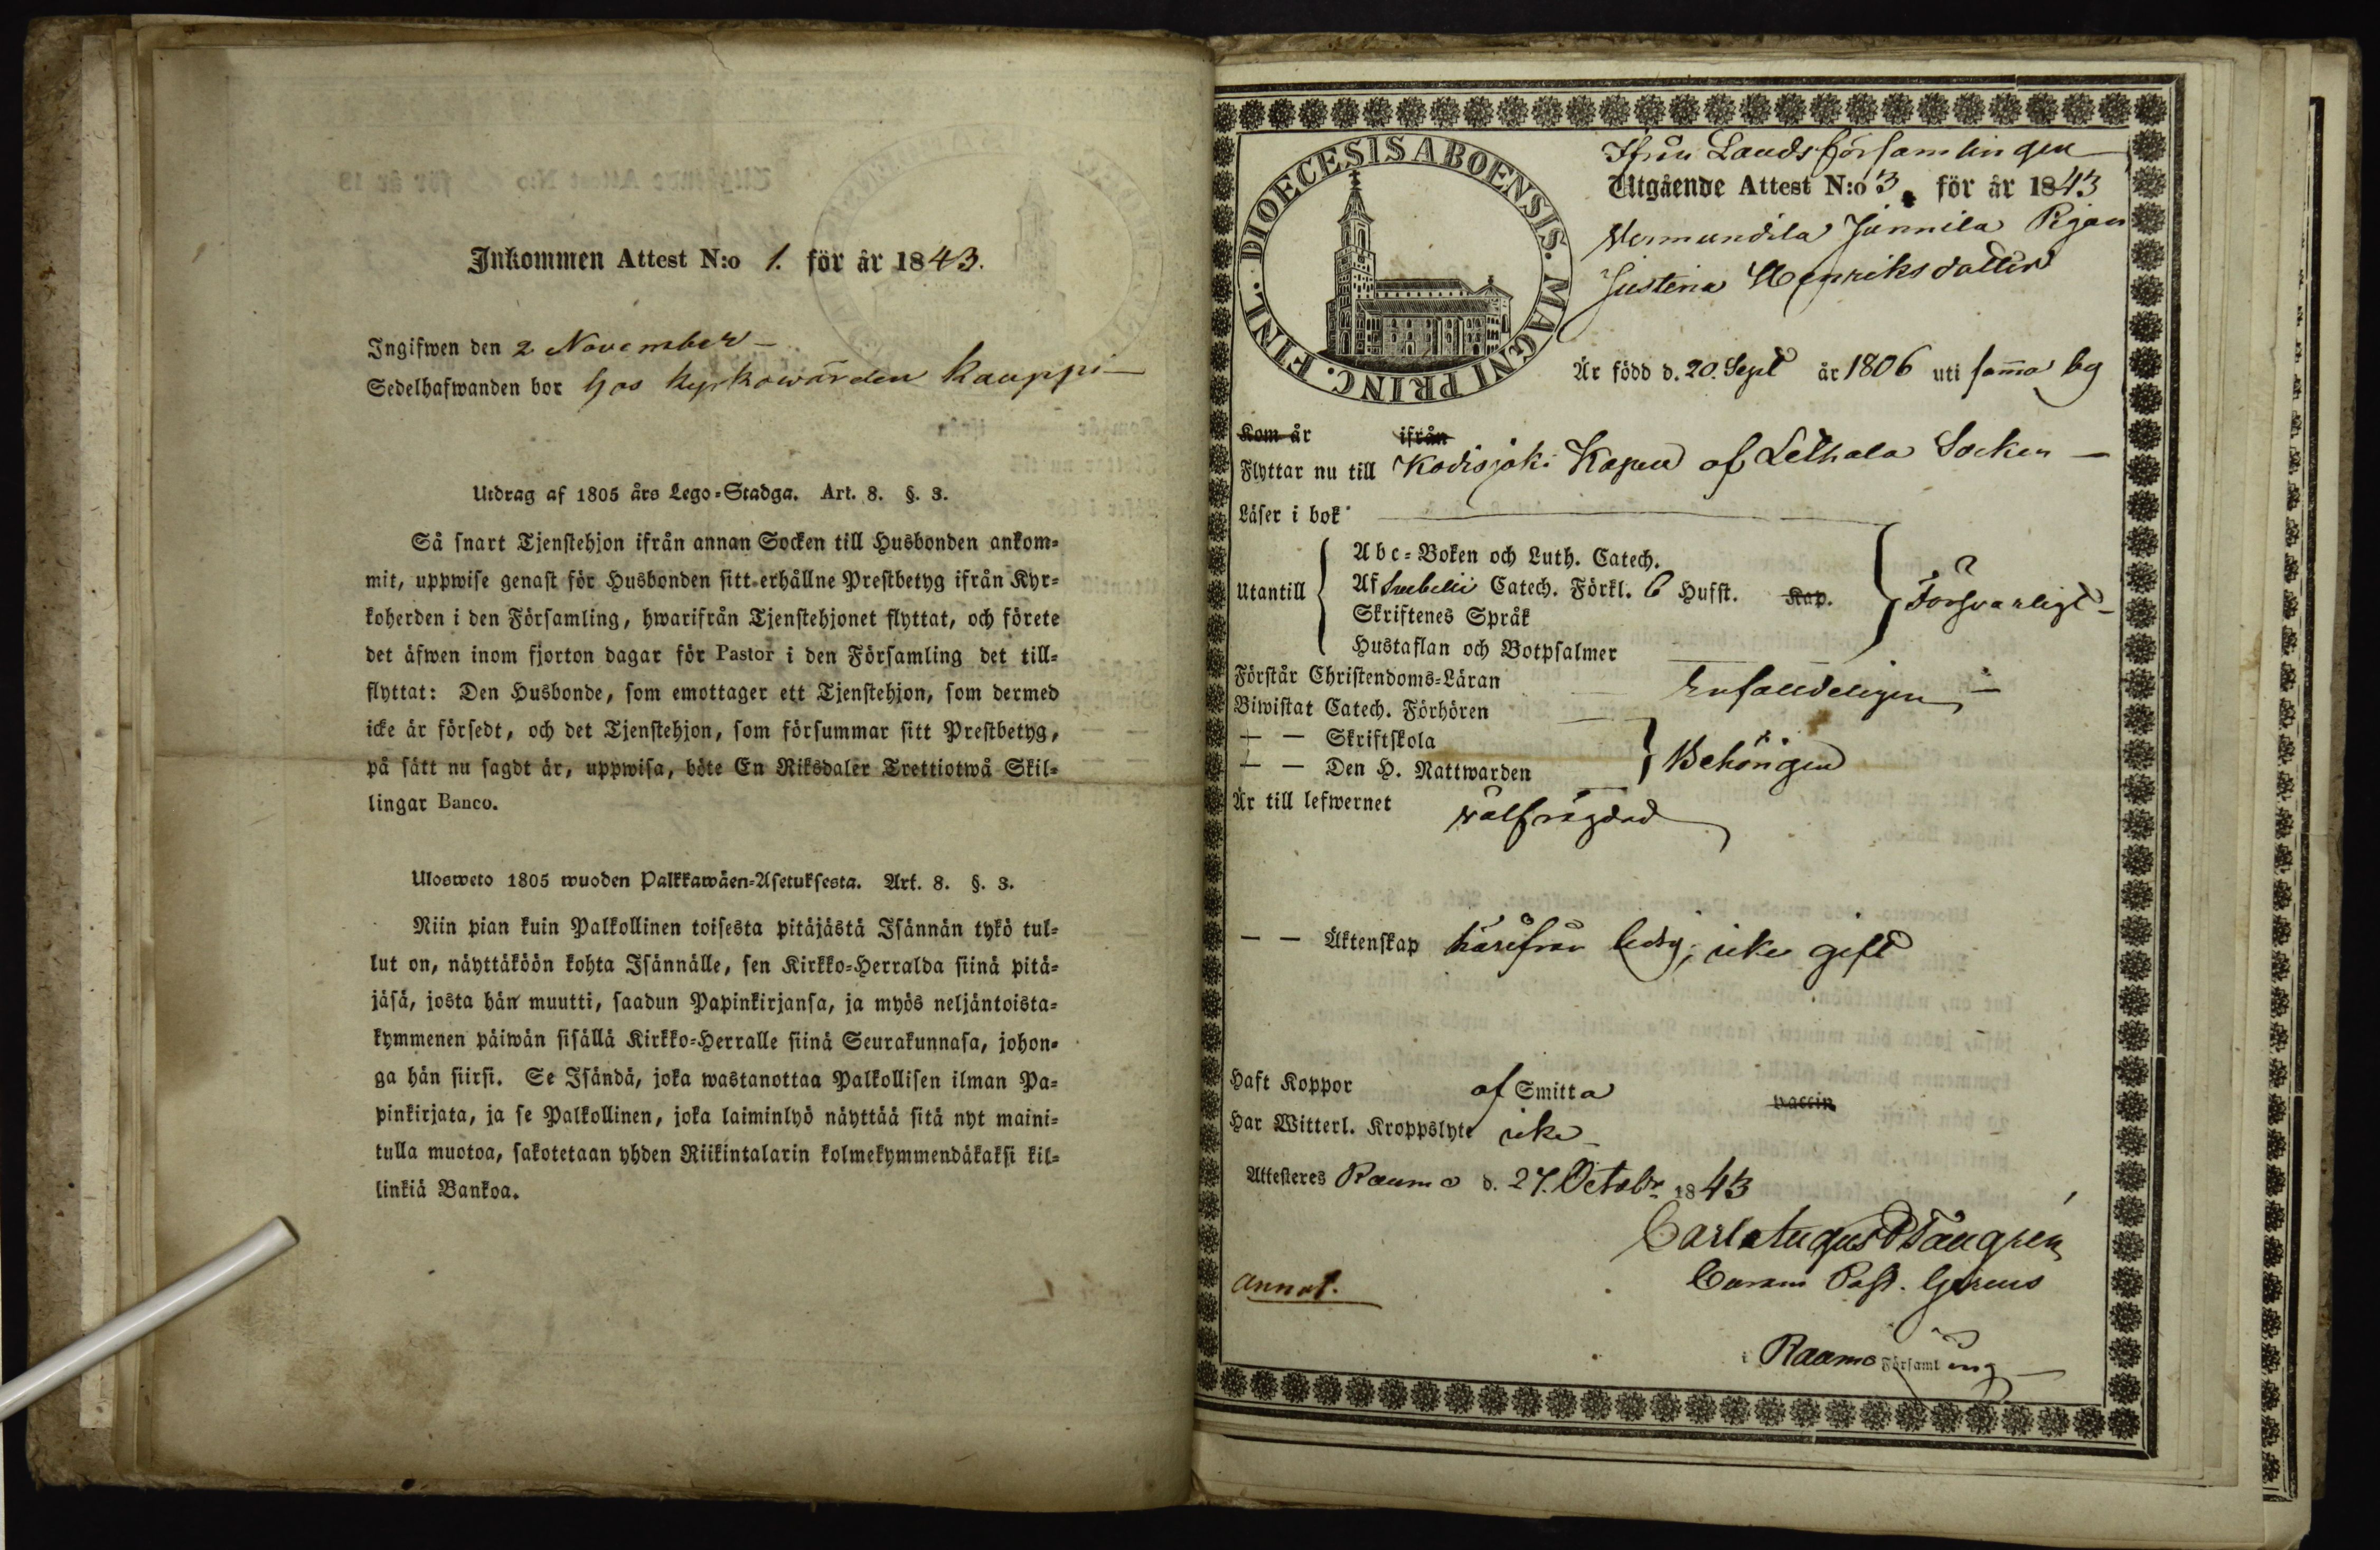 Inkommen Attest N:o 1. för år 1843.
Ingifwen den 2 November –
Sedelhafwanden bor hos kyrkowärden Kauppi –
Utdrag af 1805 års Lego-Stadga. Art. 8. §. 3.
Så snart Tjenstehjon ifrån annan Socken till Husbonden ankom-
mit, uppwise genast för Husbonden sitt erhållne Prestbetyg ifrån Kyr-
koherden i den Församling, hwarifrån Tjenstehjonet flyttat, och förete
det äfwen inom fjorton dagar för Pastor i den Församling det till-
flyttat: Den Husbonde, som emottager ett Tjenstehjon, som dermed
icke är försedt, och det Tjenstehjon, som försummar sitt Prestbetyg,
på sätt nu sagdt är, uppwisa, böte En Riksdaler Trettiotwå Skil-
lingar Banco.
Ulosweto 1805 wuoden Palkkawäen-Asetuksesta. Art. 8. §. 3.
Niin pian kuin Palkollinen toisesta pitäjästä Isännän tykö tul-
lut on, näyttäköön kohta Isännälle, sen Kirkko-Herralda siinä pitä-
jäsä, josta hän muutti, saadun Papinkirjansa, ja myös neljäntoista-
kymmenen päiwän sisällä Kirkko-Herralle siinä Seurakunnasa, johon-
ga hän siirsi. Se Isändä, joka wastanottaa Palkollisen ilman Pa-
pinkirjata, ja se Palkollinen, joka laiminlyö näyttää sitä nyt maini-
tulla muotoa, sakotetaan yhden Riikintalarin kolmekymmendäkaksi kil-
linkiä Bankoa.
DIOECESIS ABOENSIS. MAGNI PRINC. FINL.
Ifrån Landsförsamlingen
Utgående Attest N:o 3. för år 1843
Vermundila Junnila Pigan
Justina Henriksdotter
Är född d. 20. Sept år 1806 uti samma by
Kom år ifrån
Flyttar nu till Kodisjoki Kapell af Lethala Socken –
Läser i bok
Utantill
Abc-Boken och Luth. Catech.
Af Svebelii Catech. Förkl. 6 Hufst. Kap.
Skriftenes Språk
Hustaflan och Botpsalmer
Försvarligt –
Förstår Christendoms-Läran Enfalldeligen –
Biwistat Catech. Förhören
– – Skriftskola
– – Den H. Nattwarden
Behörigen
Är till lefwernet välfrägdad
– – Äktenskap härifrån ledig, icke gift
Haft Koppor af Smitta vaccin
Har Witterl. Kroppslyte icke –
Attesteres Raumo d. 27. Octobr 1843
Carl August
Past.
annot.
i Raumo Församling